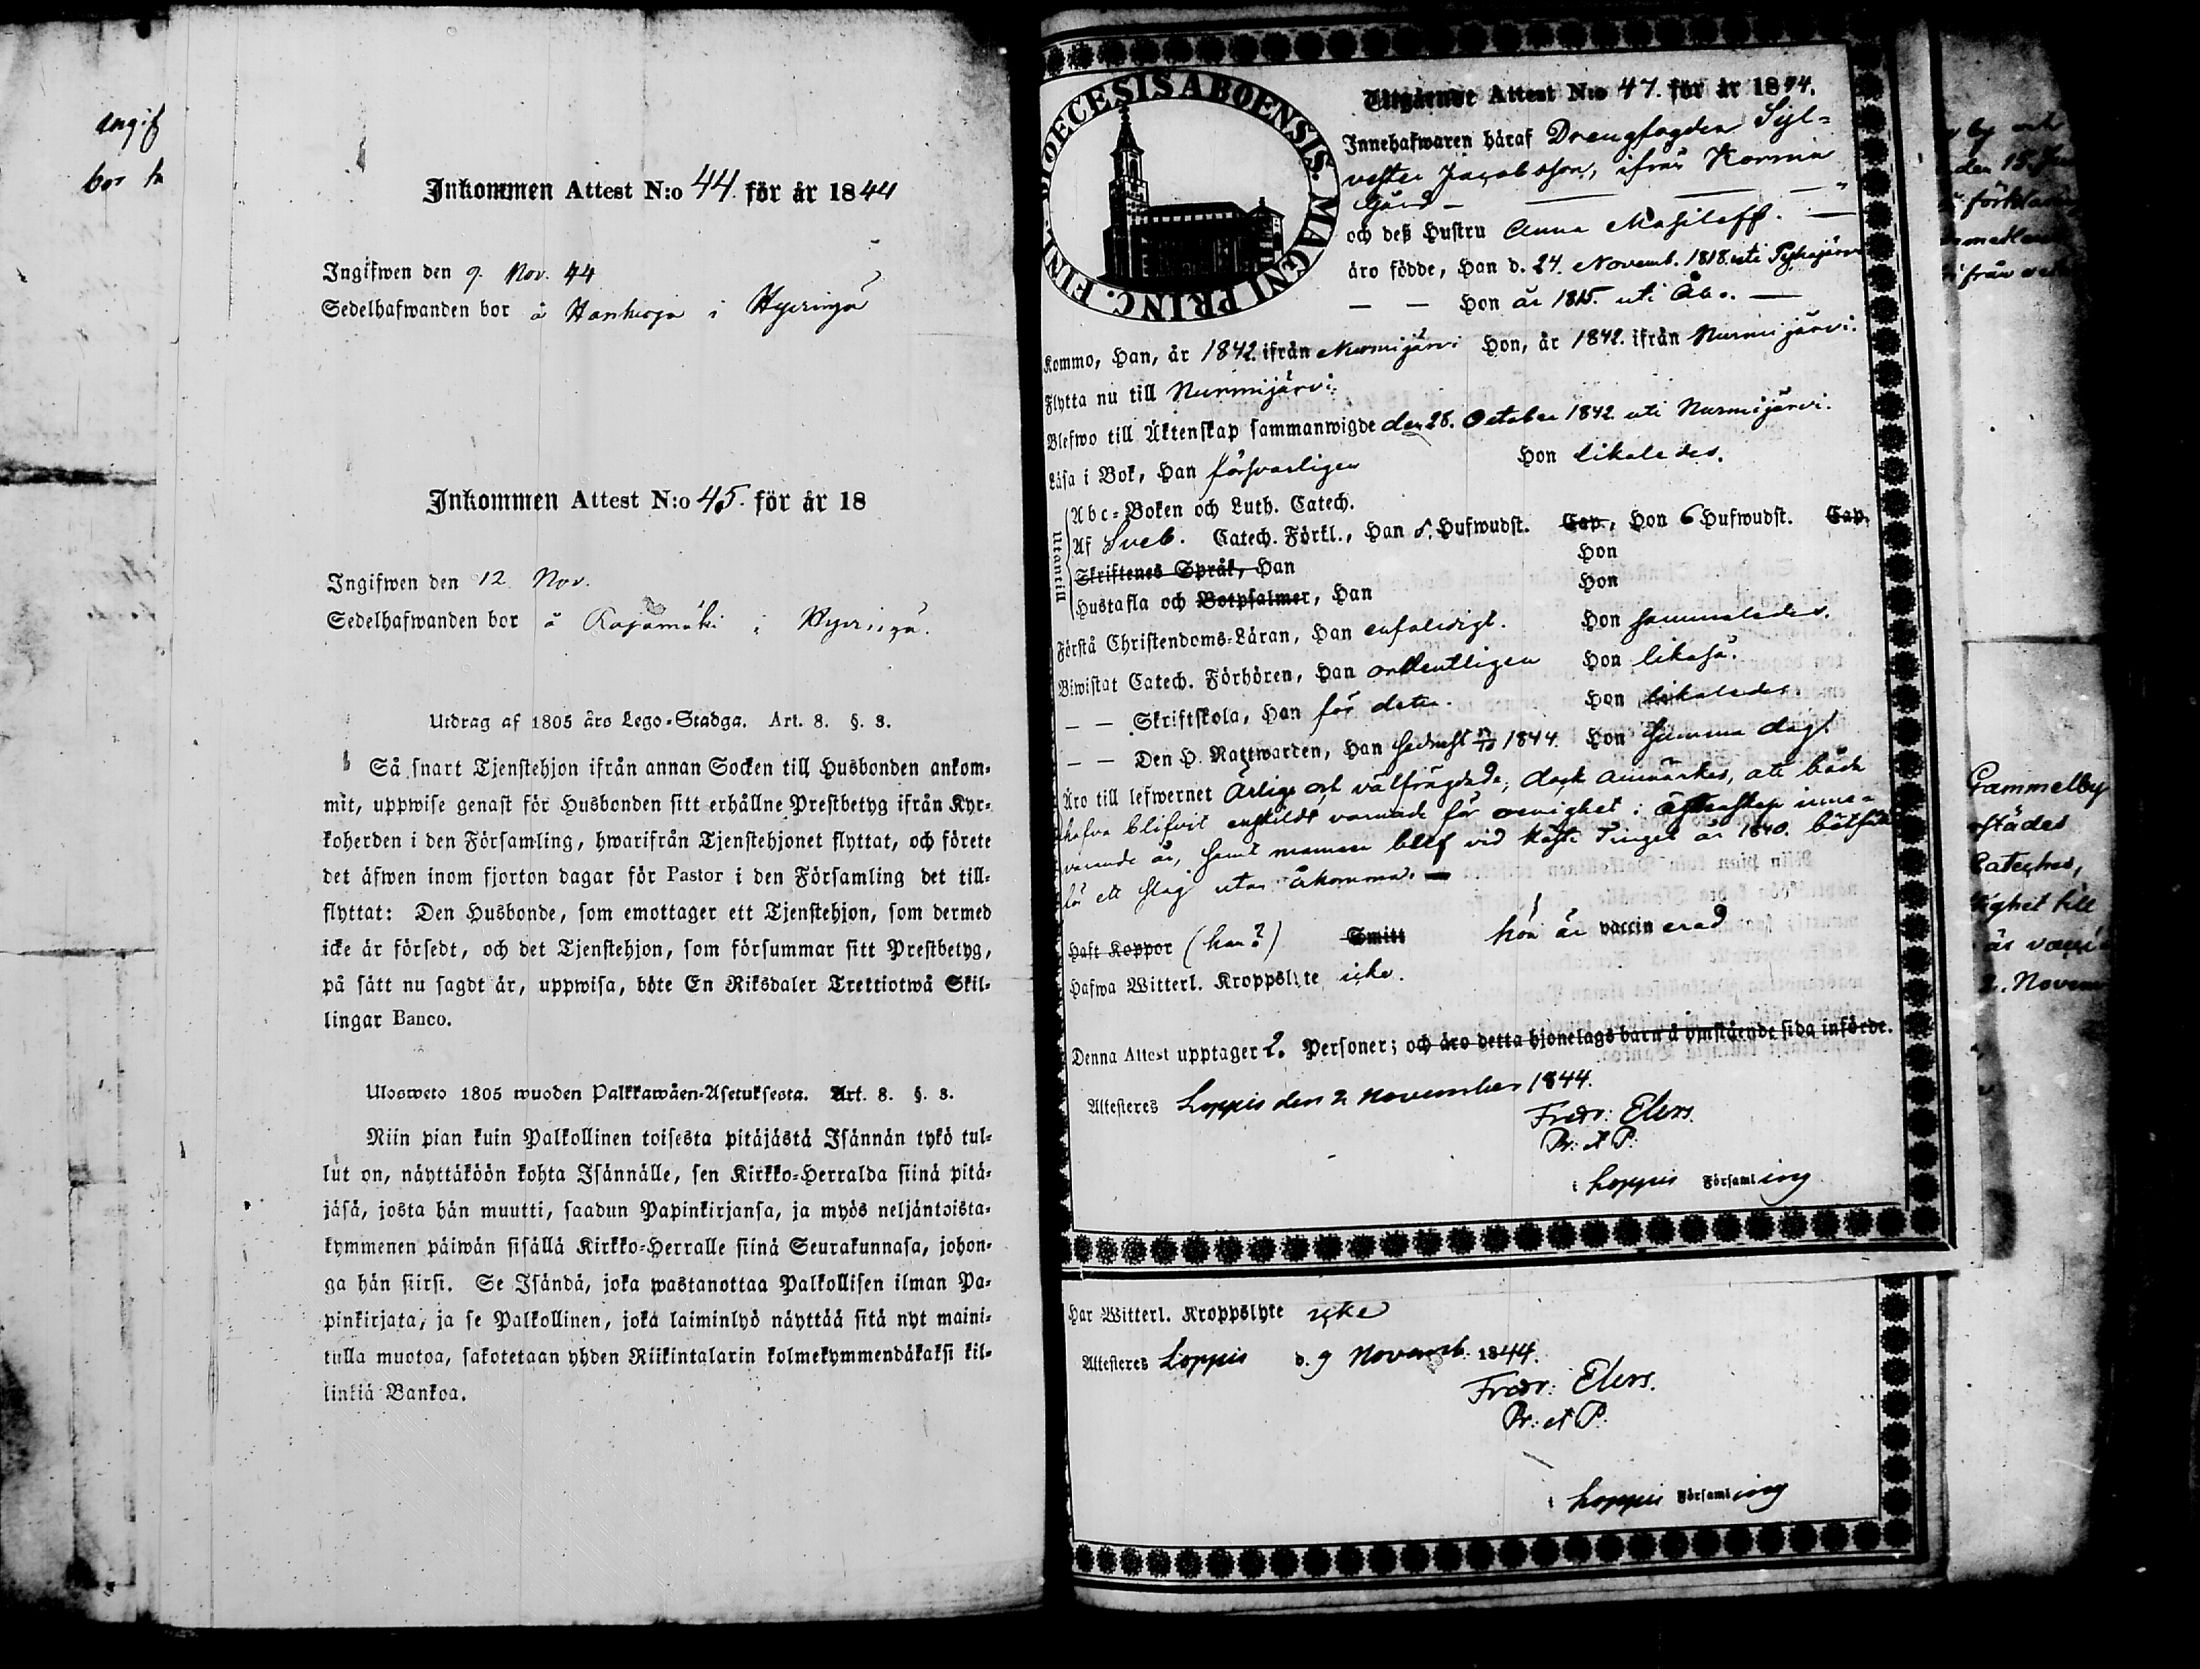 angif
bor h
Inkommen Attest N:o 44. för år 1844
Ingifwen den 9. Nov. 44
Sedelhafwanden bor å Hanhioja i Hyvinge
Inkommen Attest N:o 45. för år 18
Ingifwen den 12 Nov.
Sedelhafwanden bor å Rajamäki i Hyvinge.
Utdrag af 1805 års Lego-Stadga. Art. 8. §. 8.
Så snart Tjenstehjon ifrån annan Socken till Husbonden ankom-
mit, uppwise genast för Husbonden sitt erhållne Prestbetyg ifrån Kyr-
koherden i den Församling, hwarifrån Tjenstehjonet flyttat, och förete
det äfwen inom fjorton dagar för Pastor i den Församling det till-
flyttat: Den Husbonde, som emottager ett Tjenstehjon, som dermed
icke är försedt, och det Tjenstehjon, som försummar sitt Prestbetyg,
på sätt nu sagdt är, uppwisa, böte En Riksdaler Trettiotwå Skil-
lingar Banco.
Ulosweto 1805 wuoden Palkkawäen-Asetuksesta. Art. 8. §. 8.
Niin pian kuin Palkollinen toisesta pitäjästä Isännän tykö tul-
lut on, näyttäköön kohta Isännälle, sen Kirkko-Herralda siinä pitä-
jäsä, josta hän muutti, saadun Papinkirjansa, ja myös neljäntoista-
kymmenen päiwän sisällä Kirkko-Herralle siinä Seurakunnasa, johon-
ga hän siirsi. Se Isändä, joka wastanottaa Palkollisen ilman Pa-
pinkirjata, ja se Palkollinen, joka laiminlyö näyttää sitä nyt maini-
tulla muotoa, sakotetaan yhden Riikintalarin kolmekymmendäkaksi kil-
linkiä Bankoa.
DIOECESIS ABOENSIS. MAGNI PRINC. FINL.
Utgående Attest N:o 47. för år 1844.
Innehafwaren häraf Drengfogden Syl-
vester Jacobsson, ifrån Kormu
Gård
och deß Hustru Anna Masiloff.
äro födde, Han d. 24. Novemb. 1818. uti Pyhäjärvi
Hon år 1815. uti Åbo.
Kommo, Han, år 1842. ifrån Nurmijärvi Hon, år 1842. ifrån Nurmijärvi.
Flytta nu till Nurmijärvi.
Blefwo till Äktenskap sammanwigde den 28. October 1842 uti Nurmijärvi.
Läsa i Bok, Han försvarligen Hon likaledes.
Utantill
Abc-Boken och Luth. Catech.
Af Sveb. Catech. Förkl., Han 5. Hufwudst. Cap., Hon 6 Hufwudst. Cap.
Skriftenes Språk, Han Hon
Hustafla och Botpsalmer, Han Hon
Förstå Christendoms-Läran, Han enfaldigt. Hon sammaledes.
Biwistat Catech. Förhören, Han ordentligen Hon likaså.
— — Skriftskola, Han för detta. Hon likaledes.
— — Den H. Nattwarden, Han sednast 1844. Hon samma dag.
Äro till lefwernet ärlige och välfrägdade; dock anmärkes, att både
hafva blifvit enskildt varnade för oenighet i äktenskap inne-
varande år, samt mannen blef vid Höste Tinget år 1840. bötfäld
för ett slag utan åkomma.
Haft Koppor (han?) Smitt hon är vaccinerad
Hafwa Witterl. Kroppslyte icke.
Denna Attest upptager 2. Personer; och äro detta hjonelags barn å omstående sida införde.
Attesteres Loppis den 2 November 1844.
Fredr: Elers.
Pr: et P:
i Loppis Församling
Har Witterl. Kroppslyte icke
Attesteres Loppis d. 9 Novemb. 1844.
Fredr: Elers.
Pr: et P.
i Loppis Församling
den 15.
förklaring
från
Gammelby
städes
Cateches,
ighet till
är vacci
2. Novem